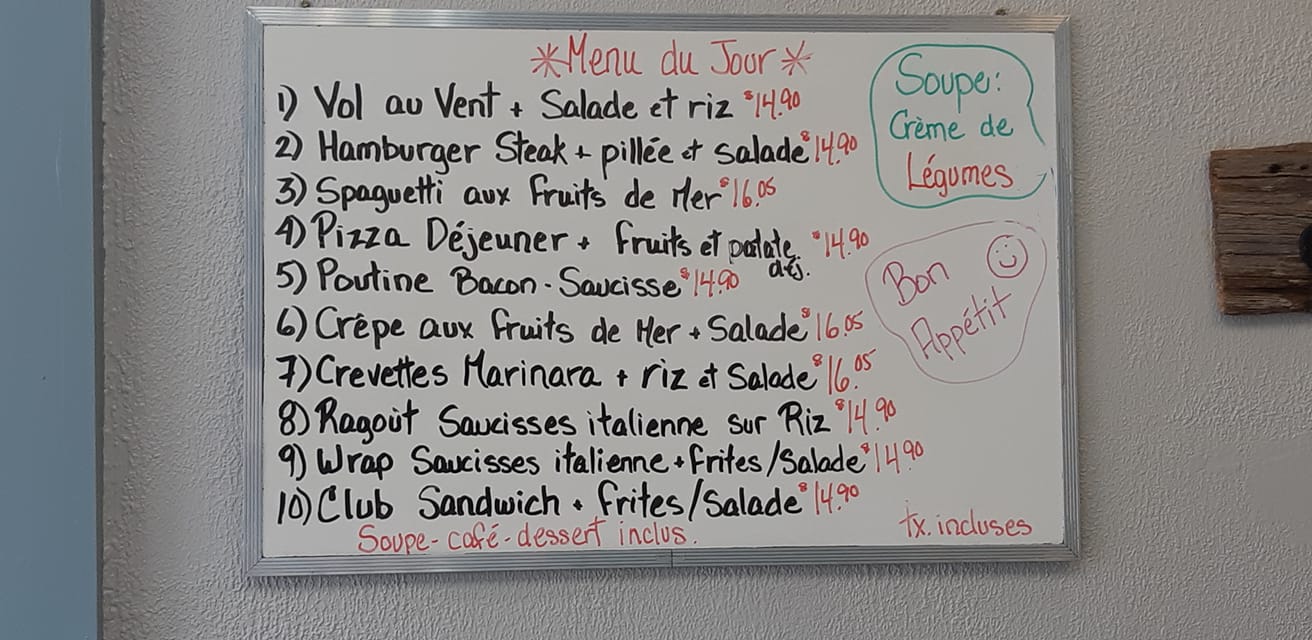 *Menu du Jour*
1) Vol au Vent + Salade et riz $14.90
2) Hamburger Steak + pillée et salade $14.90
3) Spaguetti aux fruits de Mer $16.05
4) Pizza Déjeuner + fruits et patate déj. $14.90
5) Poutine Bacon-Saucisse $14.90
6) Crêpe aux fruits de Mer + Salade $16.05
7) Crevettes Marinara + riz et Salade $16.05
8) Ragoût Saucisses italienne sur Riz $14.90
9) Wrap Saucisses italienne + frites/Salade $14.90
10) Club Sandwich + frites/Salade $14.90
Soupe-café-dessert inclus.
tx. incluses
Soupe:
Crème de
Légumes
Bon
Appétit